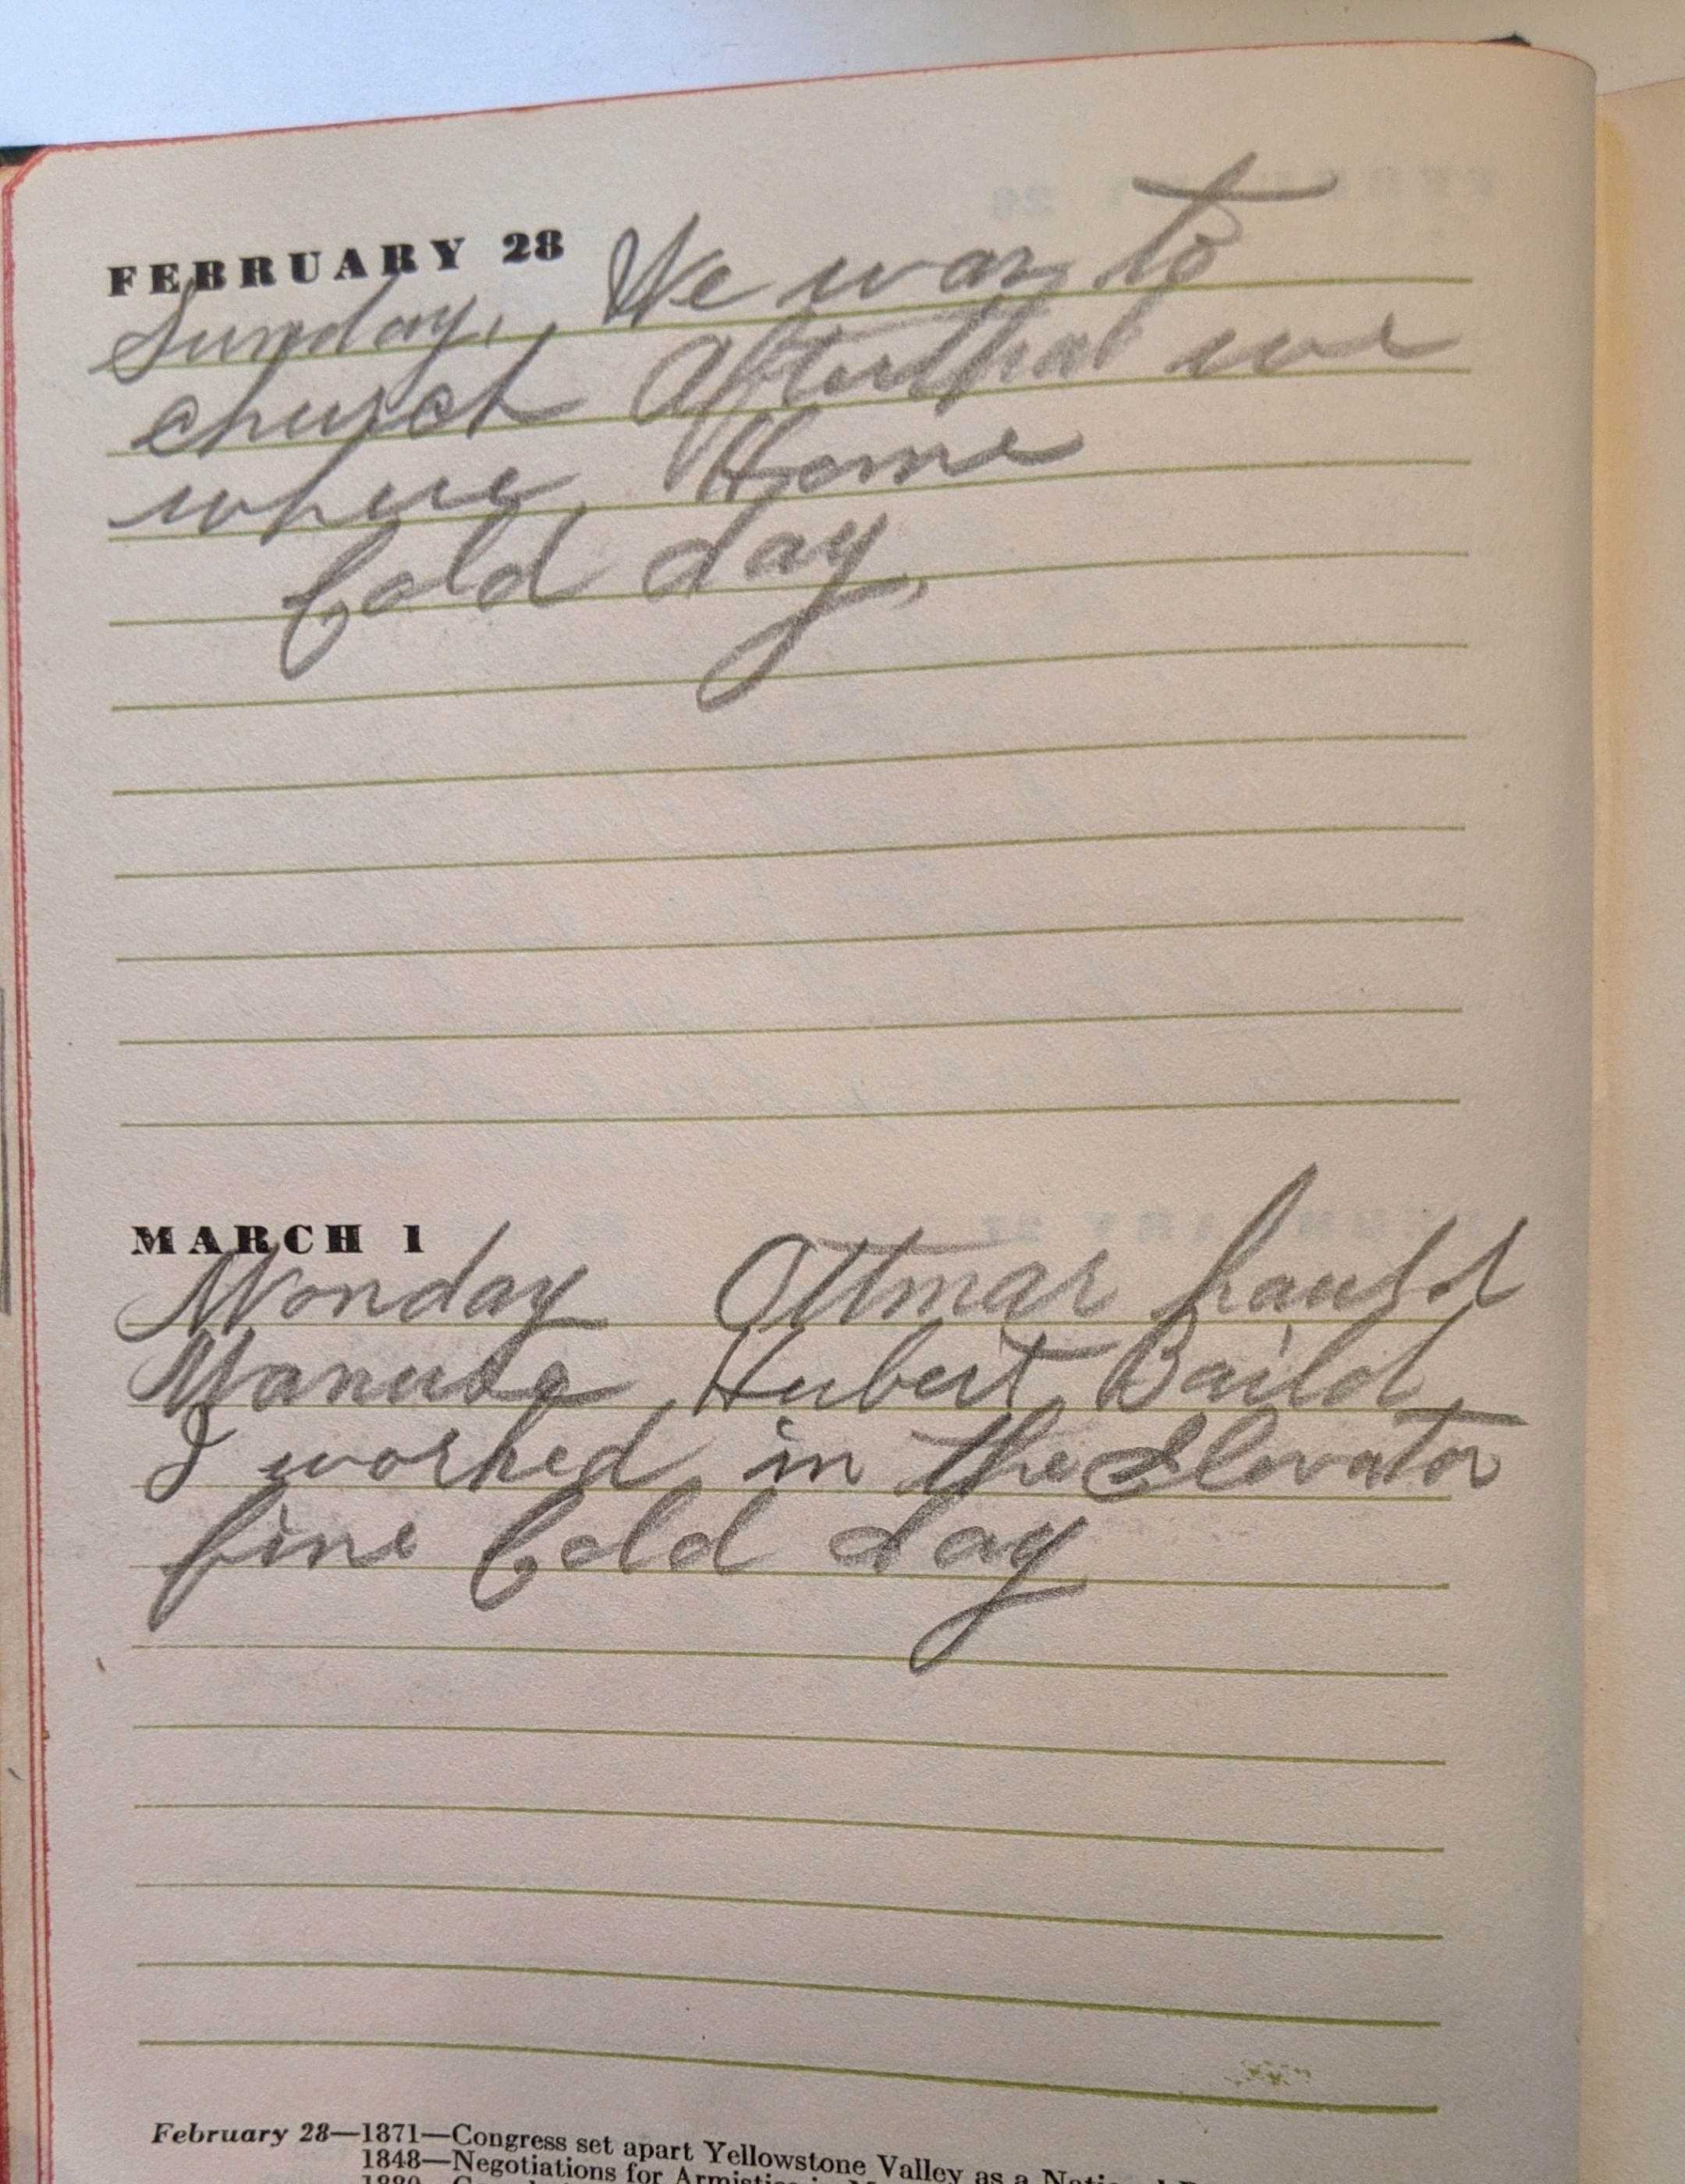 FEBRUARY 28 We war to
Sunday,
church Afterthat we
where Home
Cold day,
MARCH 1
Monday Ottmar hauld
Manure Hubert Baild
I worked in the Elevator
fine Cold day
February 28—1871—Congress set apart Yellowstone Valley as a
1848—Negotiations for Armistice in